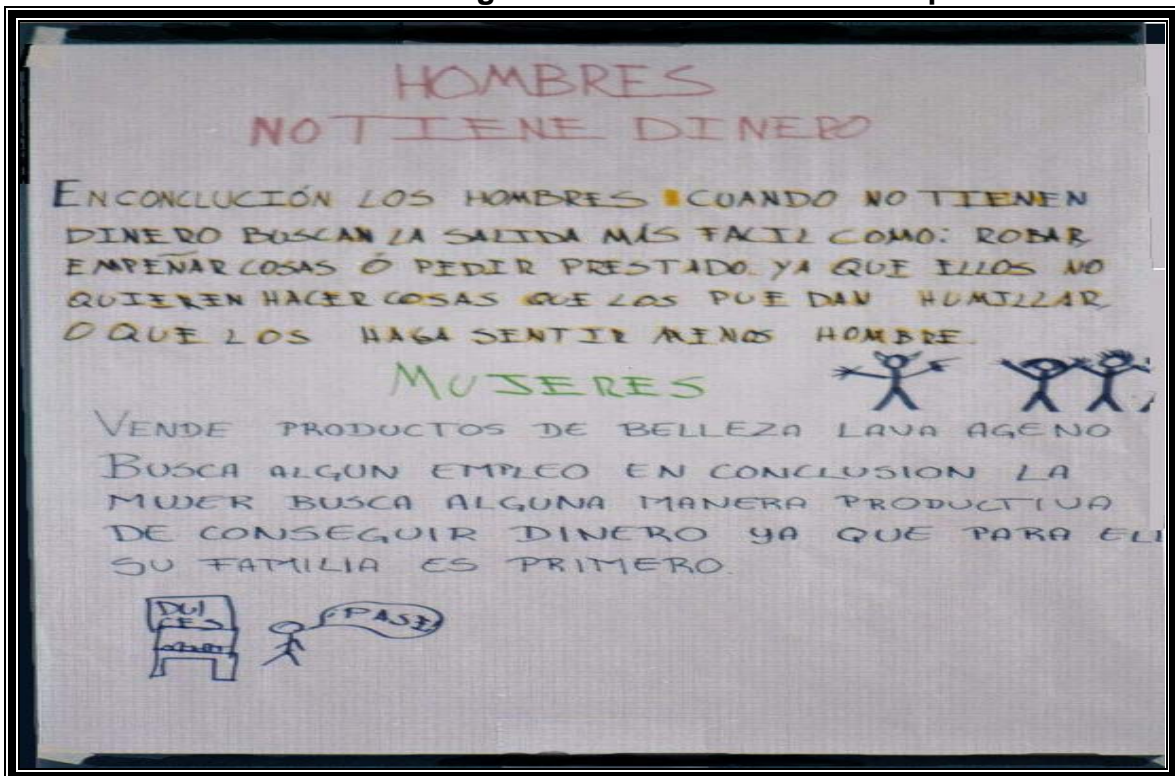 HOMBRES
NO TIENE DINERO
EN CONCLUCIÓN LOS HOMBRES CUANDO NO TIENEN
DINERO BUSCAN LA SALIDA MÁS FACIL COMO: ROBAR
EMPEÑAR COSAS Ó PEDIR PRESTADO. YA QUE ELLOS NO
QUIEREN HACER COSAS QUE LOS PUEDAN HUMILLAR
O QUE LOS HAGA SENTIR MENOS HOMBRE.
MUJERES
VENDE PRODUCTOS DE BELLEZA LAVA AGENO
BUSCA ALGUN EMPLEO EN CONCLUSION LA
MUJER BUSCA ALGUNA MANERA PRODUCTIVA
DE CONSEGUIR DINERO YA QUE PARA ELL
SU FAMILIA ES PRIMERO.
DUL
CES
PASE